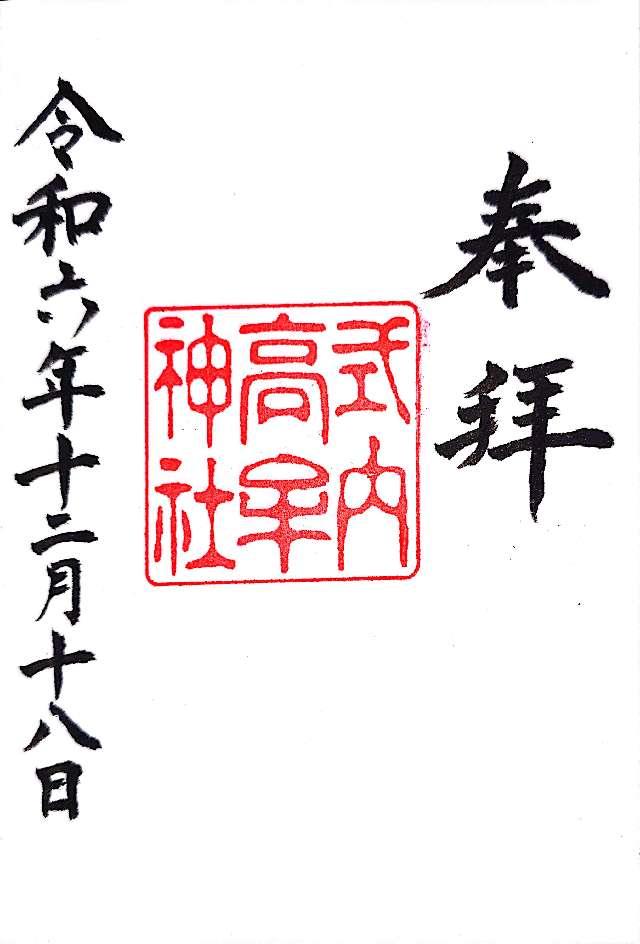 奉拝
式内
高牟
神社
令和六年十二月十八日